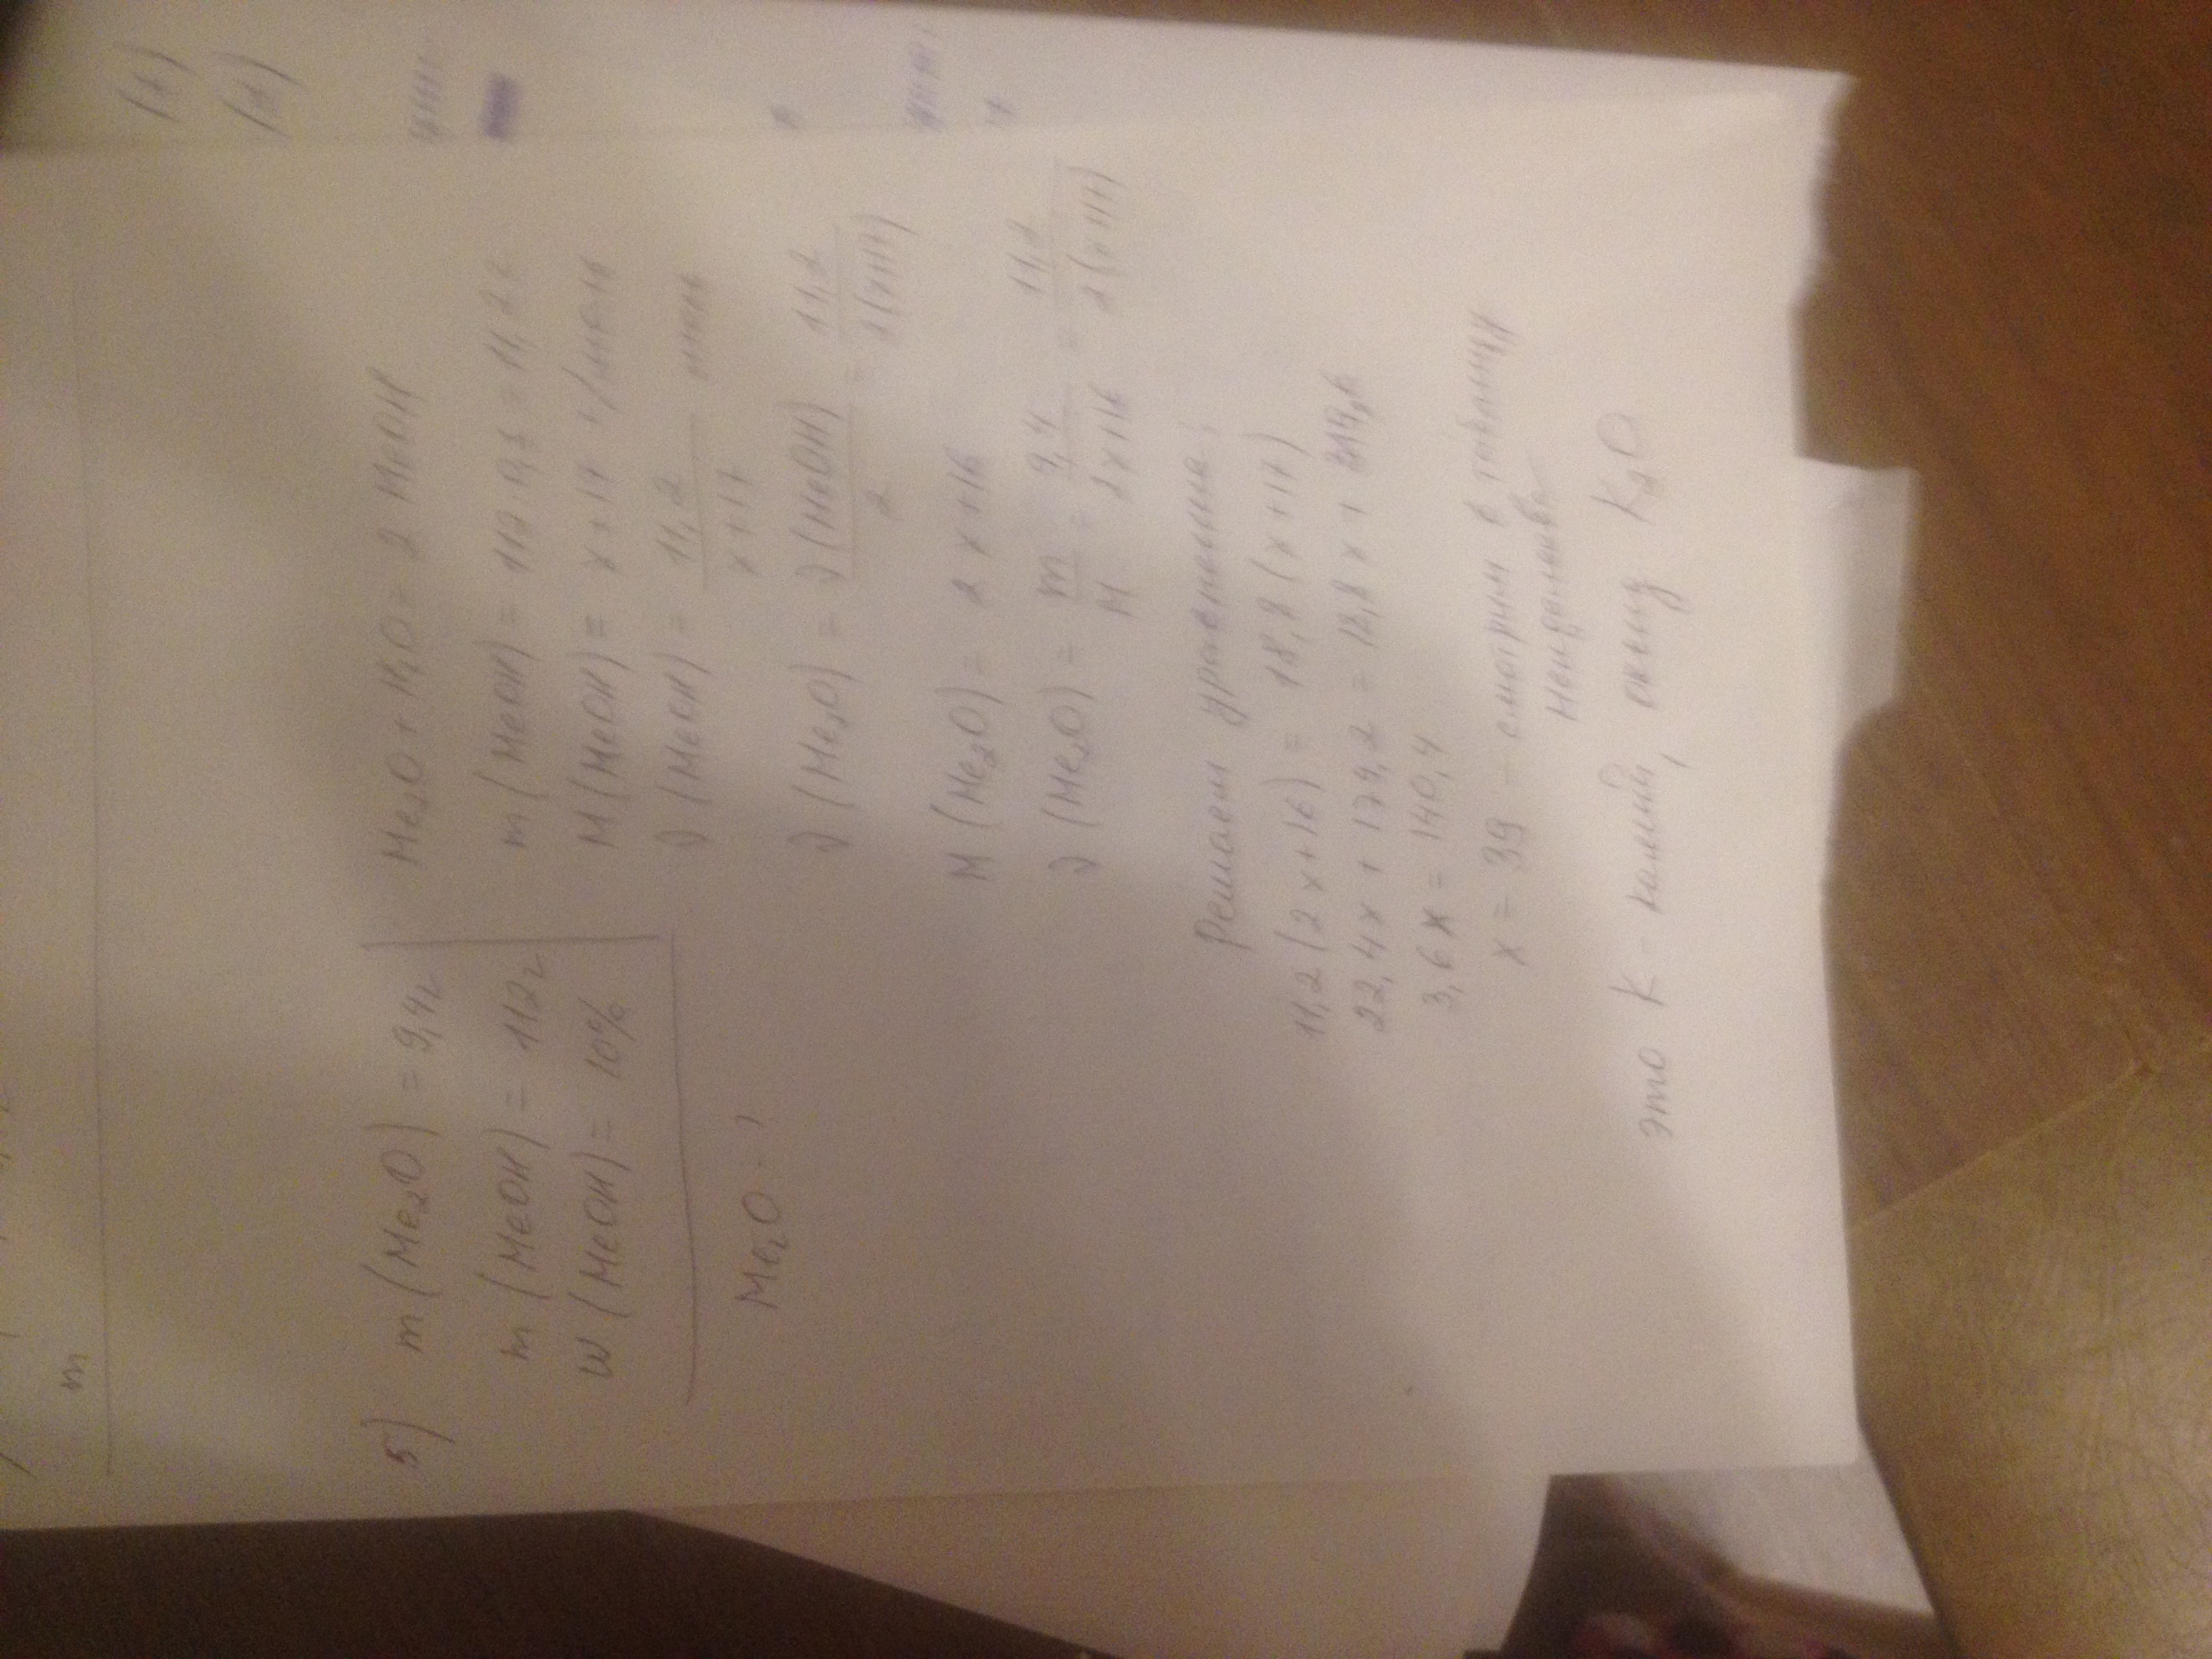 m
5) m (Me₂O) = 9,4г
m (MeOH) = 112г
W (MeOH) = 10%
Me₂O - ?
Me₂O + H₂O = 2 MeOH
m (MeOH) = 112·0,1 = 11,2г
M (MeOH) = x+17 г/моль
ν (MeOH) = 11,2 / x+17 моль
ν (Me₂O) = ν (MeOH) / 2 = 11,2 / 2(x+17)
M (Me₂O) = 2x+16
ν (Me₂O) = m / M = 9,4 / 2x+16 = 11,2 / 2(x+17)
Решаем уравнение:
11,2 (2x+16) = 18,8 (x+17)
22,4x + 179,2 = 18,8x + 319,6
3,6x = 140,4
x = 39 - смотрим в таблицу
это K - калий, оксид K₂O